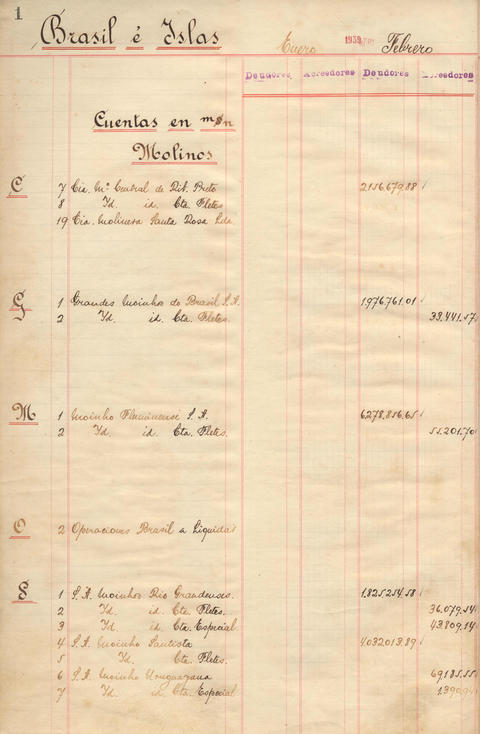 1
Brasil é Islas
Enero 1939 Febrero
Deudores Acreedores Deudores Acreedores
Cuentas en m$n
Molinos
C 7 Cia. Ma. Central de Rib. Preto 2156.679.88
8 Id. id. Cta. Fletes
19 Cia. Molinera Santa Rosa Lda.
G 1 Grandes Moinhos do Brasil S.A. 1.976.761.01
2 Id. id. Cta. Fletes. 39.441.57
M 1 Moinho Fluminense S.A. 6278.856.65
2 Id. id. Cta. Fletes. 55.201.70
O 2 Operaciones Brasil a Liquidar
S 1 S.A. Moinhos Rio Grandenses. 1.825.254.58
2 Id. id. Cta. Fletes. 36.079.54
3 Id. id. Cta. Especial 43.809.14
4 S.A. Moinho Santista 4032013.89
5 Id. Cta. Fletes.
6 S.A. Moinho Uruguayana 69.185.55
7 Id. id. Cta. Especial